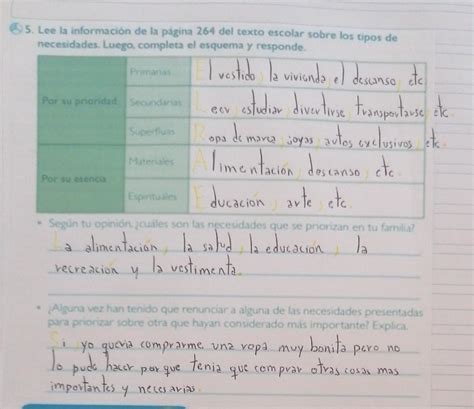 5. Lee la información de la página 264 del texto escolar sobre los tipos de
necesidades. Luego, completa el esquema y responde.
Por su prioridad
Primarias
El vestido, la vivienda, el descanso, etc
Secundarias
Leer, estudiar, divertirse, transportarse, etc.
Superfluas
Ropa de marca, joyas, autos exclusivos, etc.
Por su esencia
Materiales
Alimentación, descanso, etc.
Espirituales
Educación, arte, etc.
• Según tu opinión, ¿cuáles son las necesidades que se priorizan en tu familia?
La alimentación, la salud, la educación, la
recreación y la vestimenta.
• ¿Alguna vez han tenido que renunciar a alguna de las necesidades presentadas
para priorizar sobre otra que hayan considerado más importante? Explica.
Si, yo quería comprarme una ropa muy bonita pero no
lo pude hacer por que tenia que comprar otras cosas mas
importantes y necesarias.